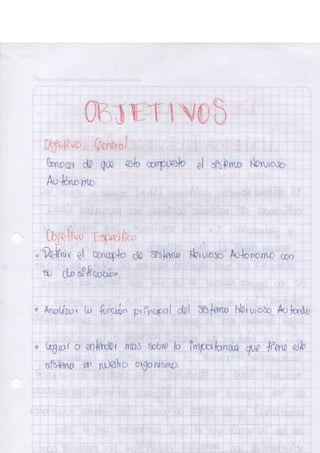 OBJETIVOS
Objetivo General
Conocer de que esta compuesto el sistema Nervioso
Autónomo
Objetivo Especifico
• Definir el concepto de sistema Nervioso Autonomo con
su clasificación
• Analizar la función principal del sistema Nervioso Autonomo
• Lograr o entender mas sobre la importancia que tiene este
sistema en nuestro organismo.